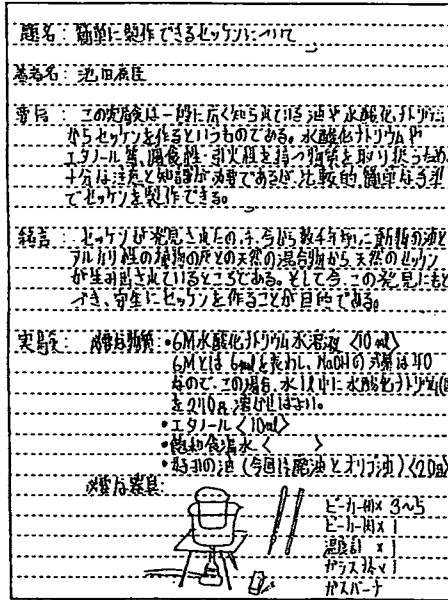 題名: 簡単に製作できるセッケンについて
著者名: 池田
要旨: この実験は一般に広く知られている油や水酸化ナトリウム
からセッケンを作るというものである。水酸化ナトリウムや
エタノール等、腐食性・引火性を持つ物質を取り扱うため
十分な注意と知識が必要であるが、比較的簡単な手順
でセッケンを製作できる。
緒言: セッケンが発見されたのは、今から数千年前に動物の油と
アルカリ性の植物の灰との天然の混合物から、天然のセッケン
が生み出されているところである。そして今、この発見にもと
づき、安全にセッケンを作ることが目的である。
実験: 必要な物質: ・6M水酸化ナトリウム水溶液 <10ml>
6Mとは 6mol/lを表わし、NaOHの式量は40
なので、この場合、水1l中に水酸化ナトリウム(固)
を240g溶かせばよい。
・エタノール <10ml>
・飽和食塩水 < >
・好みの油 (今回は廃油とオリーブ油) <20g>
必要な器具:
ビーカー(大) × 3~5
ビーカー(小) × 1
温度計 × 1
ガラス棒 × 1
ガスバーナ